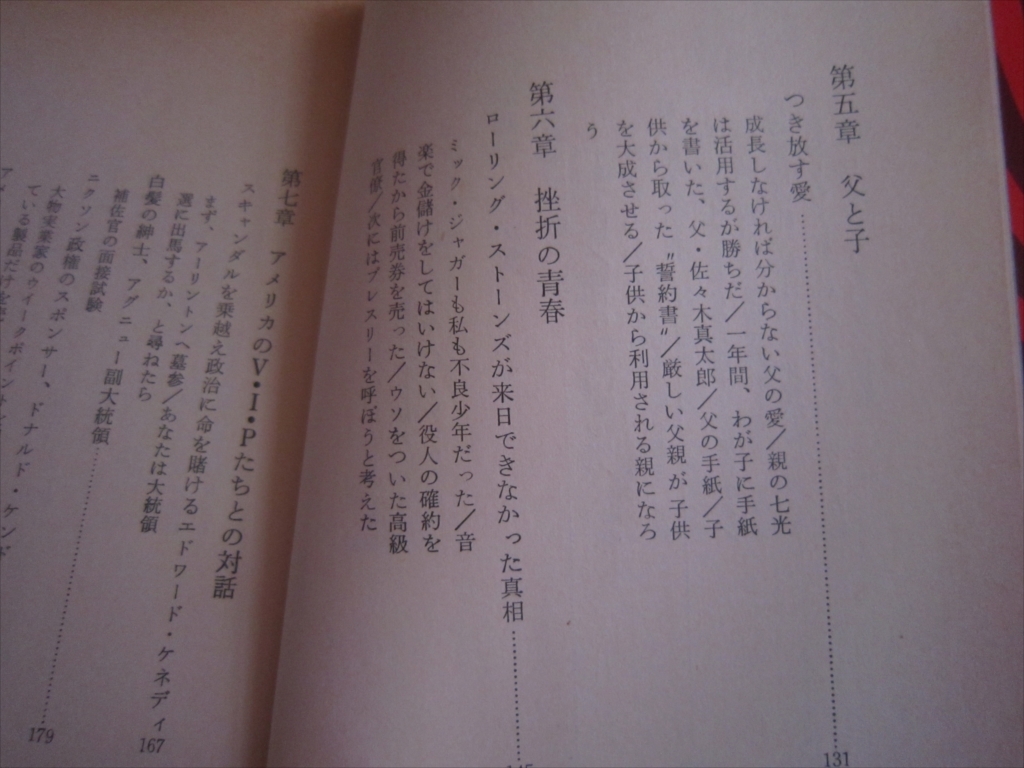 第五章　父と子
つき放す愛……………131
成長しなければ分からない父の愛／親の七光
は活用するが勝ちだ／一年間、わが子に手紙
を書いた、父・佐々木真太郎／父の手紙／子
供から取った〝誓約書〟／厳しい父親が子供
を大成させる／子供から利用される親になろ
う
第六章　挫折の青春
ローリング・ストーンズが来日できなかった真相……………
ミック・ジャガーも私も不良少年だった／音
楽で金儲けをしてはいけない／役人の確約を
得たから前売券を売った／ウソをついた高級
官僚／次にはプレスリーを呼ぼうと考えた
第七章　アメリカのV・I・Pたちとの対話
スキャンダルを乗越え政治に命を賭けるエドワード・ケネディ 167
まず、アーリントンへ墓参／あなたは大統領
選に出馬するか、と尋ねたら
白髪の紳士、アグニュー副大統領……………179
補佐官の面接試験
ニクソン政権のスポンサー、ドナルド・ケンド
大物実業家のウイークポイント
ている製品だけを
アメ